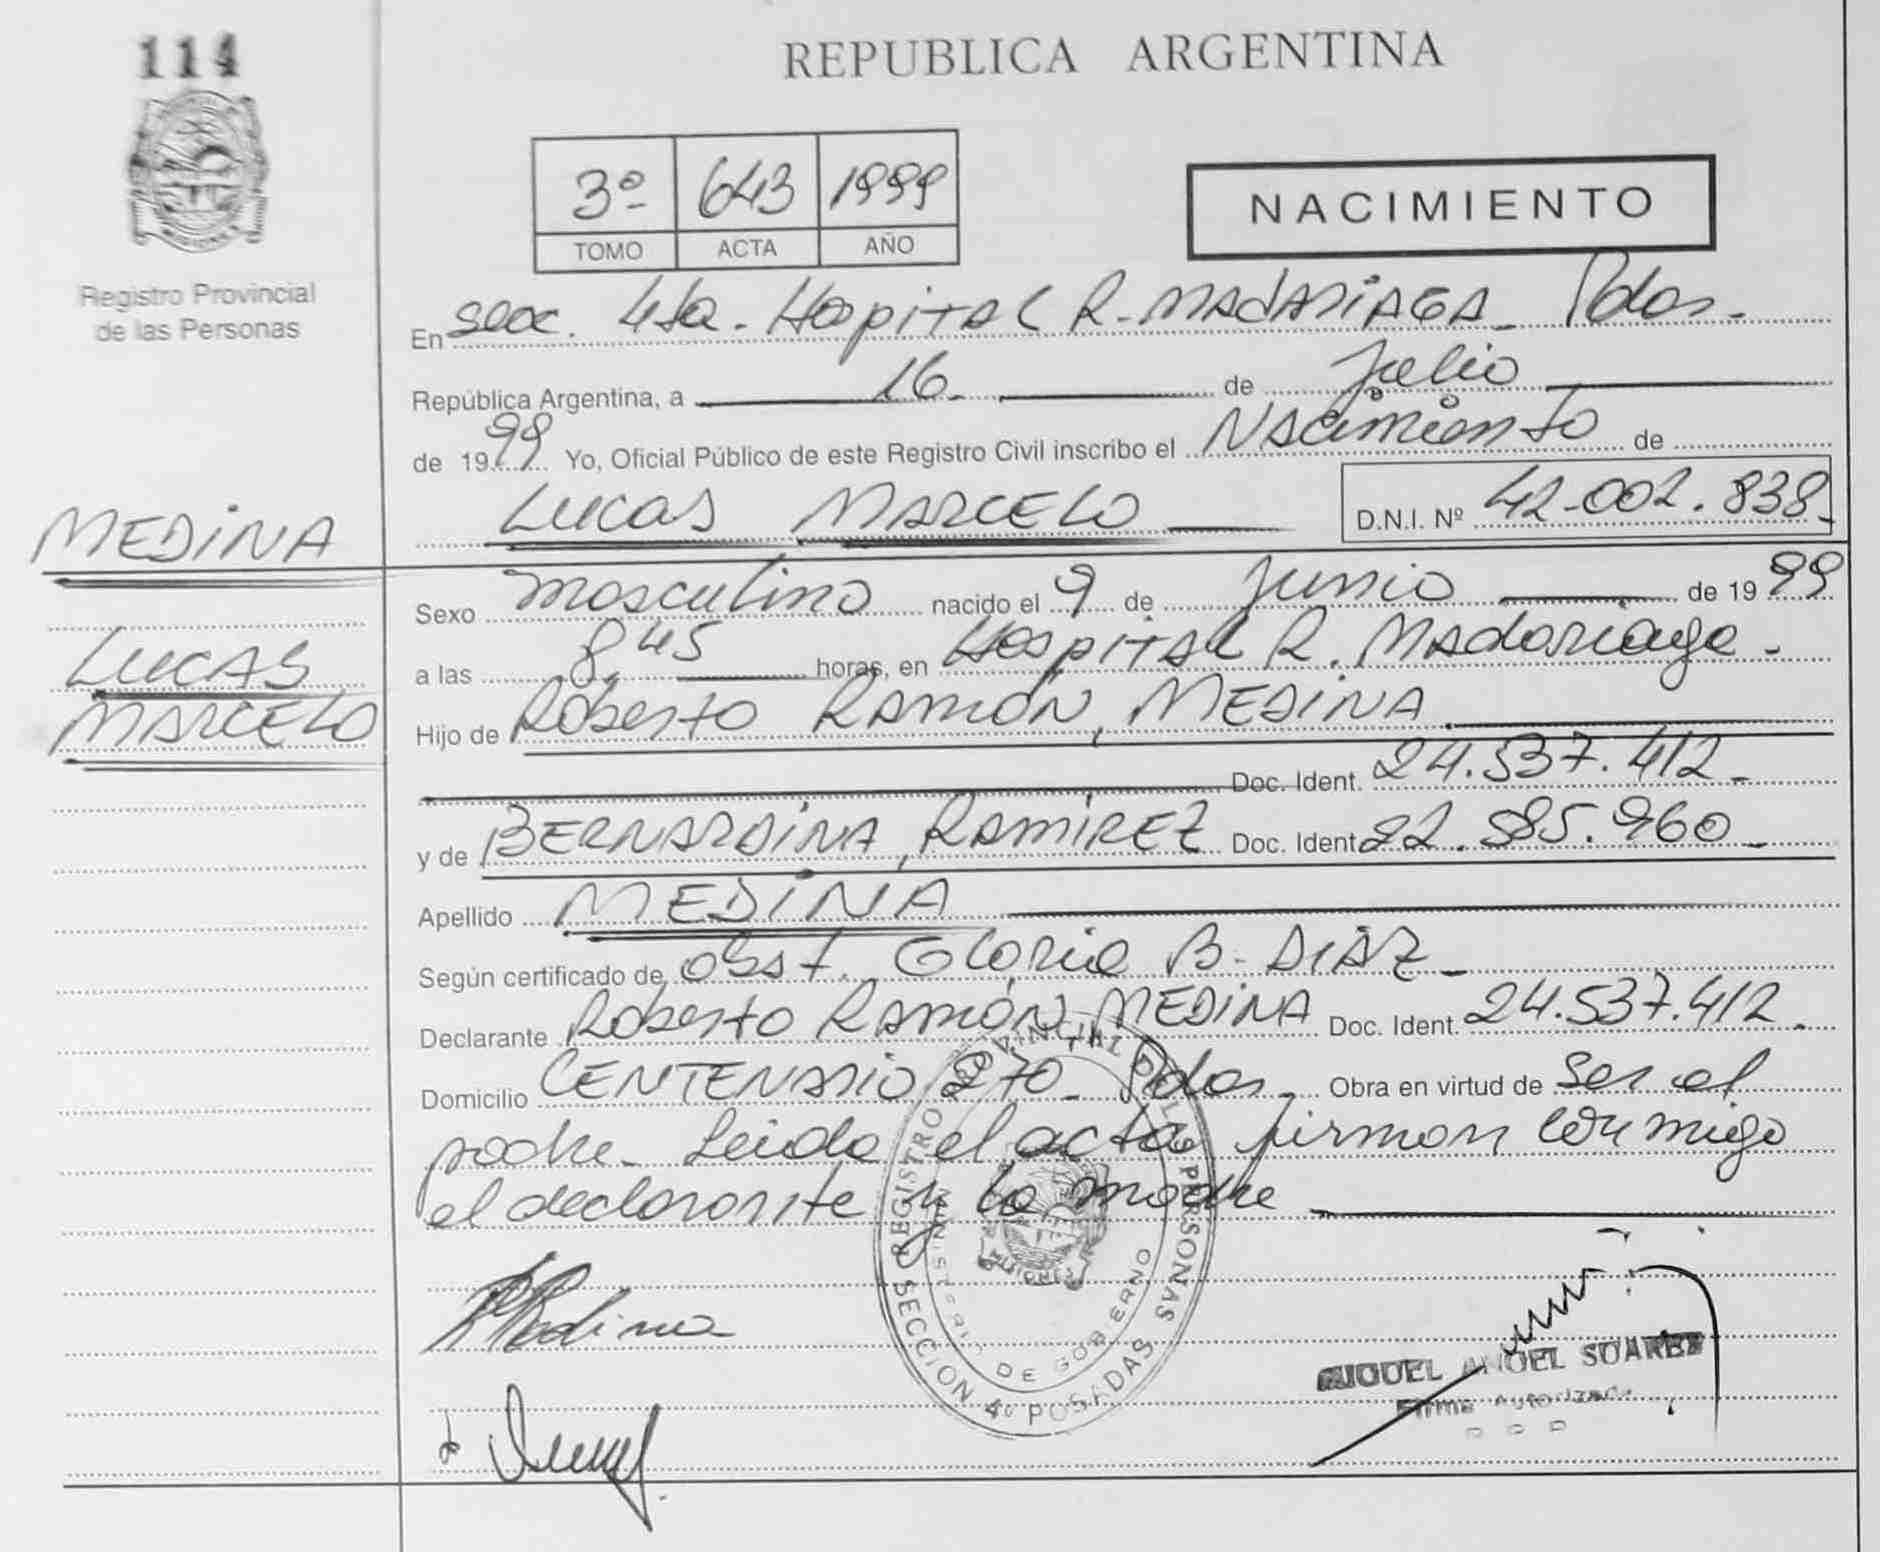 114
REPUBLICA ARGENTINA
3º 643 1999
TOMO ACTA AÑO
NACIMIENTO
Registro Provincial
de las Personas
En secc. 4ta. Hospital R. MADARIAGA - Pdas.
República Argentina, a 16 de Julio
de 1999 Yo, Oficial Público de este Registro Civil inscribo el Nacimiento de
MEDINA
LUCAS MARCELO D.N.I. Nº 42.002.838
Sexo masculino nacido el 9 de Junio de 1999
LUCAS
a las 8,45 horas, en Hospital R. Madariaga.
MARCELO
Hijo de Roberto RAMÓN, MEDINA
Doc. Ident. 24.537.412
y de BERNARDINA, RAMIREZ Doc. Ident 22.585.960
Apellido MEDINA
Según certificado de obst. Gloria B. DIAZ
Declarante Roberto RAMÓN, MEDINA Doc. Ident. 24.537.412.
Domicilio CENTENARIO 270 - Pdas. Obra en virtud de ser el
padre - Leida el acta, firman conmigo
el declarante y la madre
REGISTRO PROVINCIAL DE LAS PERSONAS
MINISTERIO DE GOBIERNO
MISIONES
SECCION 4º POSADAS
Medina
MIGUEL ANGEL SUAREZ
Firma Autorizada